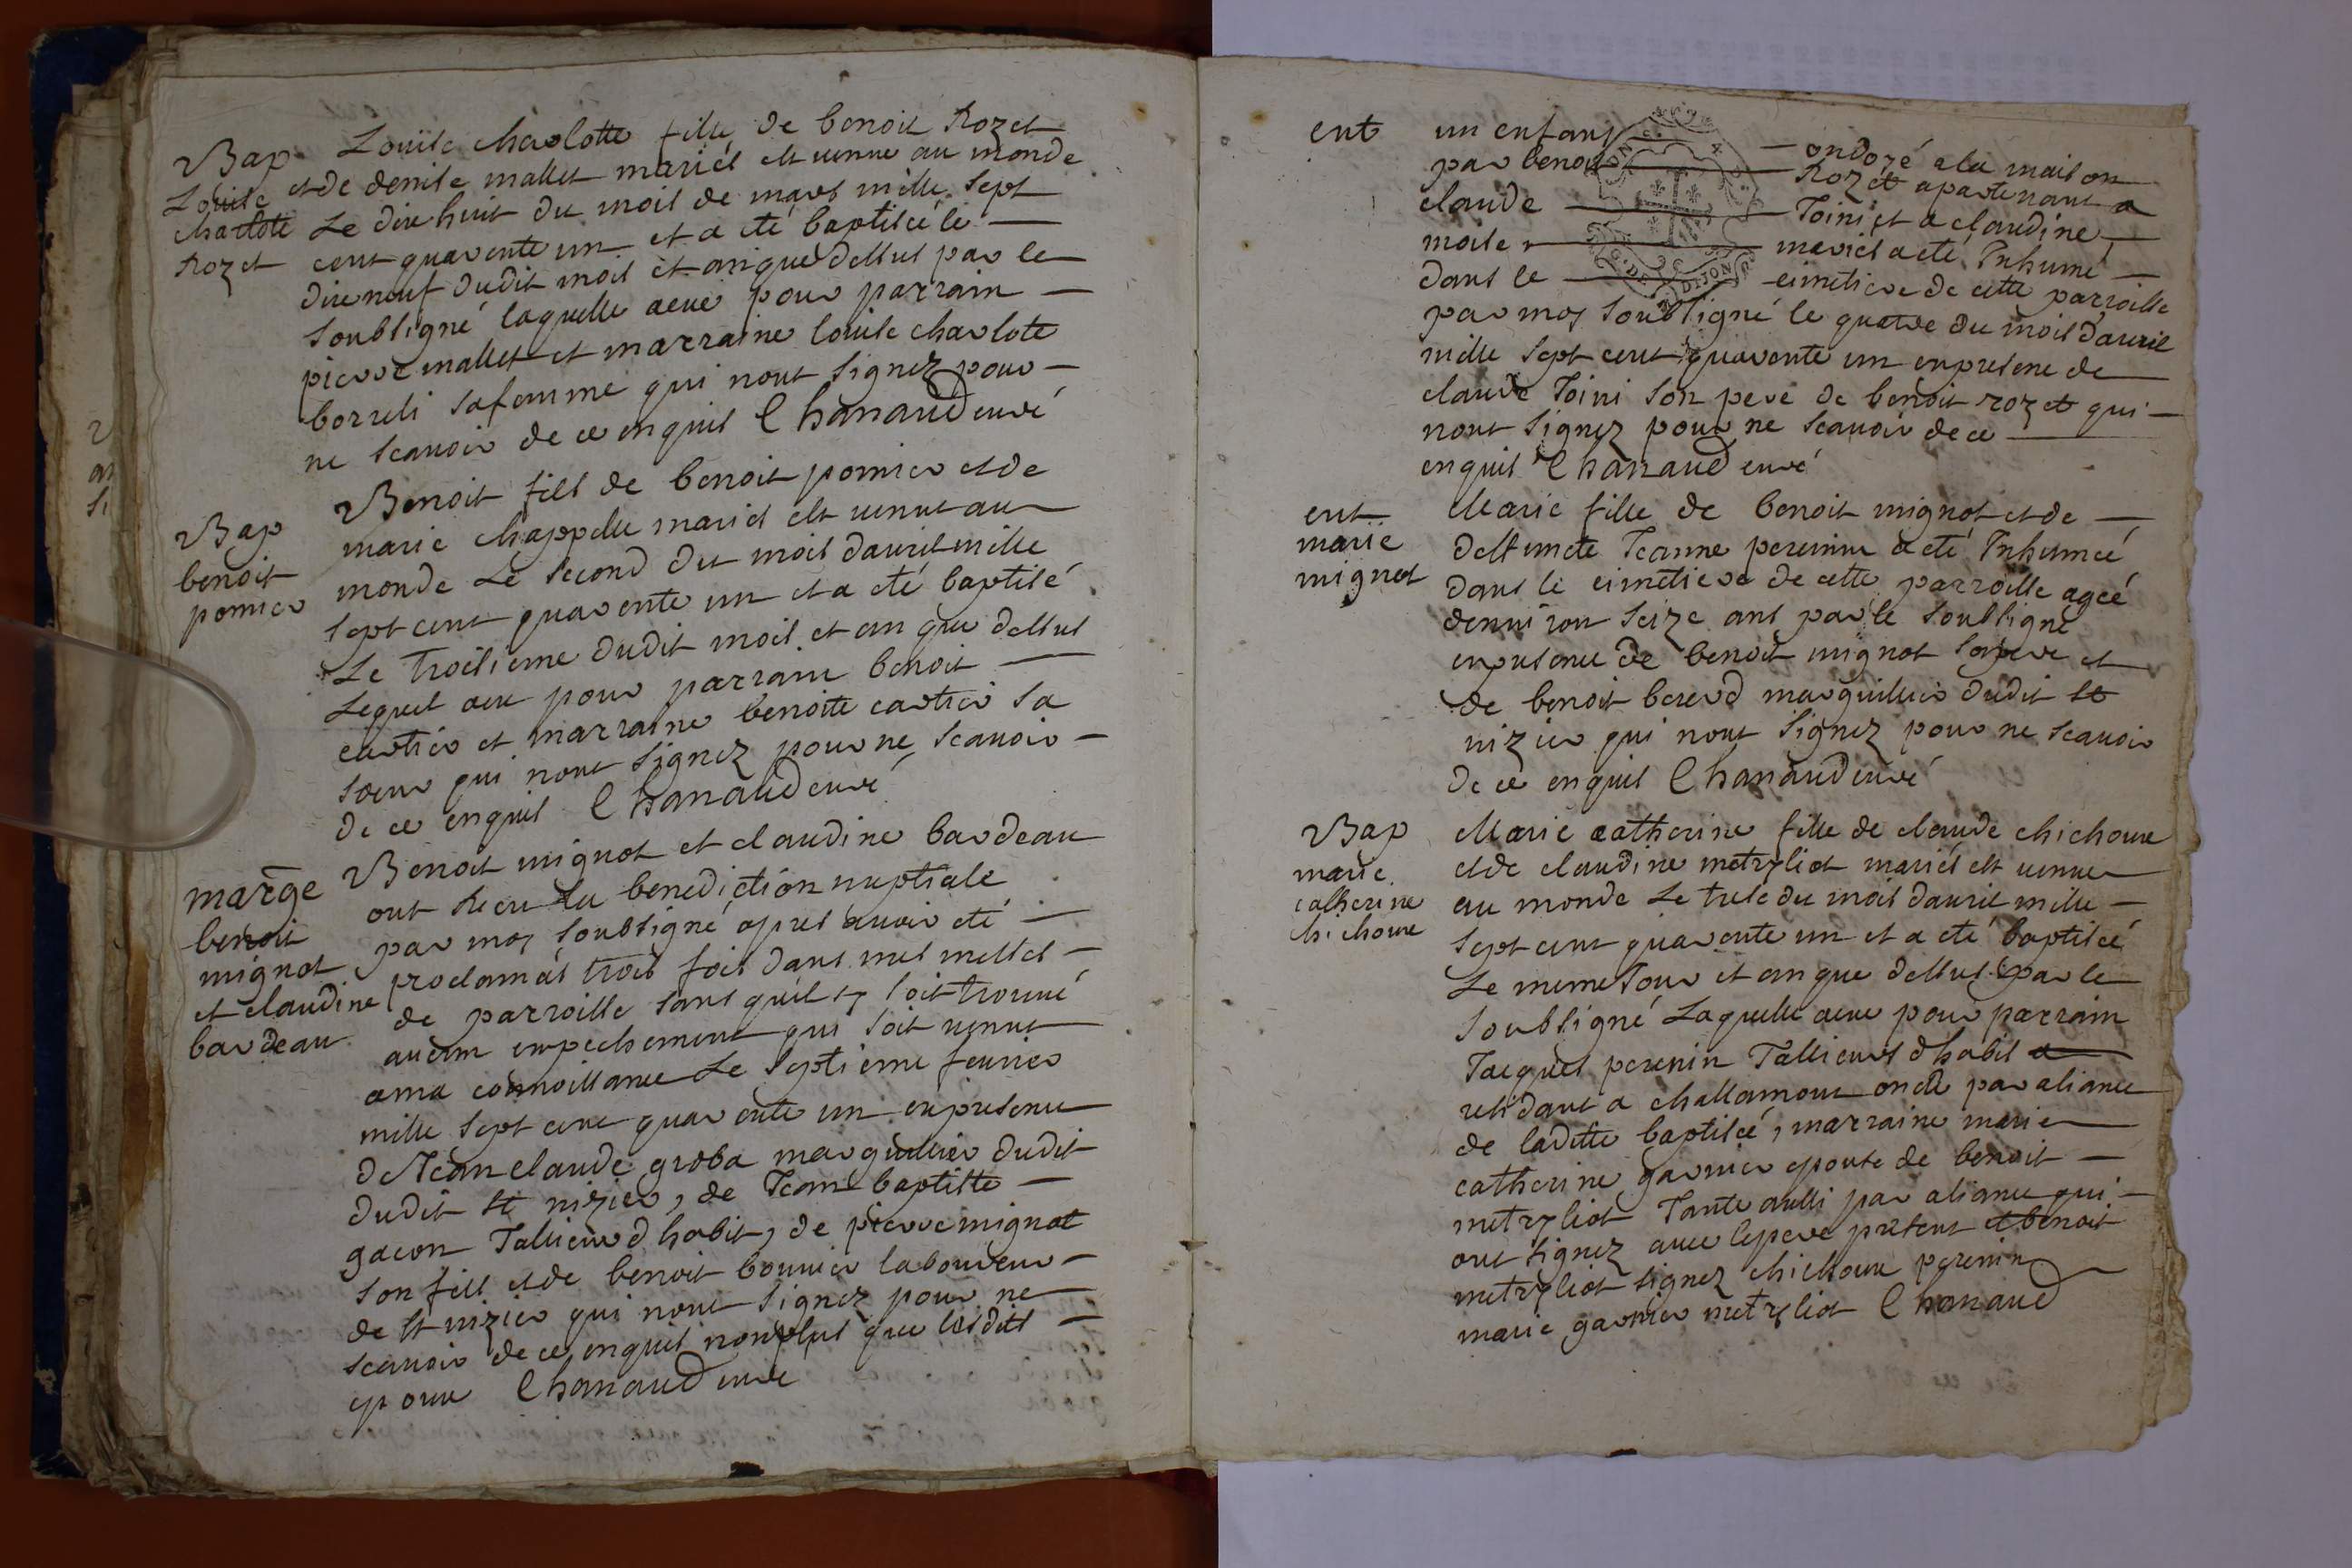 Bap
Louise
charlote
Rozet
Louise charlotte fille de benoit Rozet
et de denise mallet mariés est venue au monde
Le dix huit du mois de mars mille sept
cent quarente un et a eté baptisée le
dixneuf dudit mois et an que dessus par le
soubsigné laquelle aeue pour parrain
pierre mallet et marraine louise charlote
borreli safemme qui nont signez pour
ne scavoir de ce enquis Chanaud curé
Bap
benoit
pomier
Benoit fils de benoit pomier et de
marie chappelle mariés est venut au
monde Le second du mois davril mille
sept cent quarente un et a eté baptisé
Le troisieme dudit mois et an que dessus
Lequel aeu pour parrain benoit
cartier et marraine benoite cartier sa
soeur qui nont signez pour ne scavoir
de ce enquis Chanaud curé
marge
benoit
mignot
et claudine
bardeau
Benoit mignot et claudine bardeau
ont Recu La benediction nuptiale
par moy soubsigné apres avoir eté
proclamés trois fois dans mes messes
de parroisse sans quil sy soit trouvé
aucun empechement qui soit venut
ama connoissance Le septieme fevrier
mille sept cent quarente un enpresence
de Jean claude groba marguillier dudit
dudit st nizier, de Jean baptiste
gacon Tallieur d habit, de pierre mignot
son fils et de benoit bonnier laboureur
de st nizier qui nont signez pour ne
scavoir de ce enquis nonplus que lesdits
epoux Chanaud curé
ent
un enfant ondoyé a la maison
par benoit Rozet apartenant a
claude Toini et a claudine
moiser mariés a eté Inhumé
dans le cimetiere de cette parroisse
par moy soubsigné le quatre du mois davril
mille sept cent quarente un enpresence de
claude Toini son pere de benoit rozet qui
nont signez pour ne scavoir de ce
enquis Chanaud curé
ent
marie
mignot
Marie fille de benoit mignot et de
deffuncte Jeanne perenin a eté Inhumée
dans le cimetiere de cette parroisse agée
denviron seize ans par le soubsigné
enpresence de benoit mignot sonpere et
de benoit bererd marguillier dudit st
nizier qui nont signez pour ne scavoir
de ce enquis Chanaud curé
Bap
marie
catherine
chichoux
Marie catherine fille de claude chichoux
et de claudine metryliot mariés est venue
au monde Le treise du mois davril mille
sept cent quarente un et a eté baptisée
Le meme Jour et an que dessus par le
soubsigné Laquelle aeue pour parrain
Jacques perenin Tallieurs d habis a
residant a challamont oncle par aliance
de laditte baptisée, marraine marie
catherine garnier epouse de benoit
metryliot Tante aussi par aliance qui
ont signez avec lepere present et benoit
metryliot signez chichoux perenin
marie garnier metryliot Chanaud